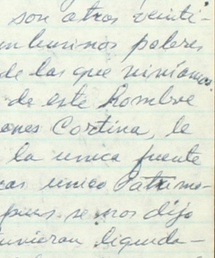 son otros veinti-
de las que vivíamos
de este hombre
ones Cortina, le
la unica fuente
cas unico Patrimo-
pues se nos dijo
uvieran liquida-